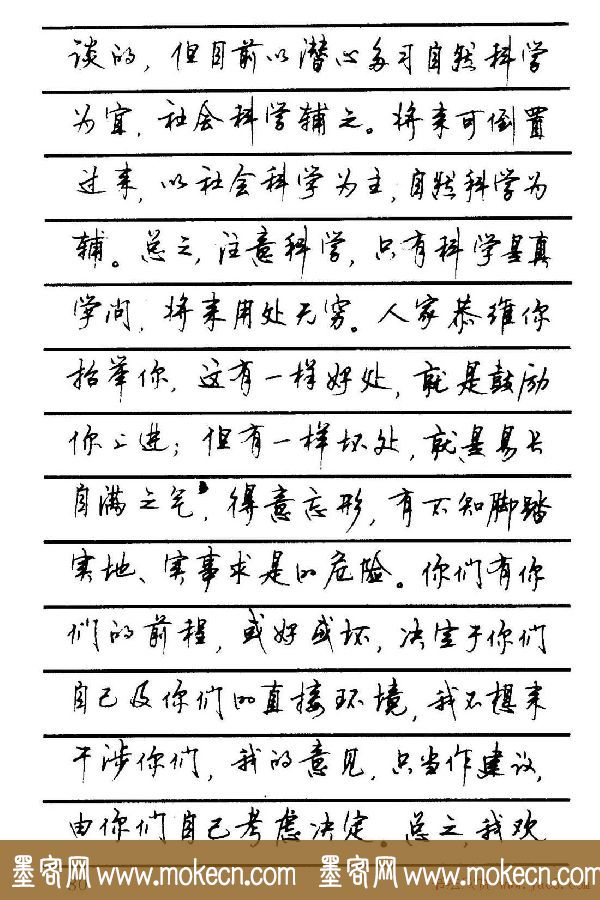 谈的，但目前以潜心多习自然科学
为宜，社会科学辅之。将来可倒置
过来，以社会科学为主，自然科学为
辅。总之，注意科学，只有科学是真
学问，将来用处无穷。人家恭维你
抬举你，这有一样好处，就是鼓励
你上进；但有一样坏处，就是易长
自满之气，得意忘形，有不知脚踏
实地、实事求是的危险。你们有你
们的前程，或好或坏，决定于你们
自己及你们的直接环境，我不想来
干涉你们，我的意见，只当作建议，
由你们自己考虑决定。总之，我欢
墨客网 www.mokecn.com 墨客网 www.mokecn.com